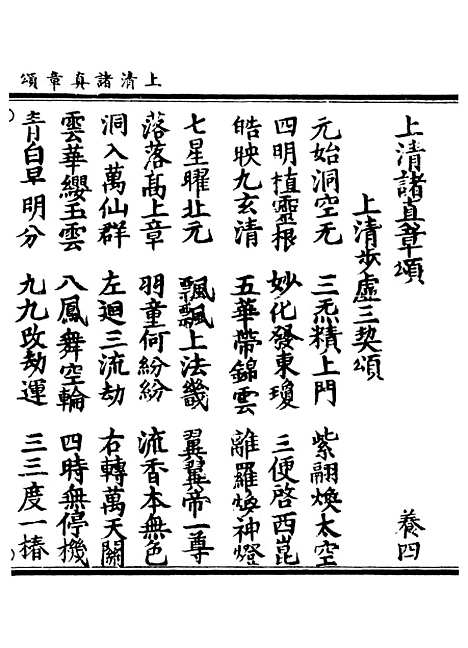 上清諸真章頌
上清諸真章頌 養四
上清步虛三契頌
元始洞空无 三炁精上門 紫翮煥太空
四明植靈根 妙化發東瓊 三便啓西崑
皓映九玄清 五華帶錦雲 離羅煥神燈
七星曜北元 飄飄上法畿 翼翼帝一尊
落落高上章 羽童何紛紛 流香本無色
洞入萬仙群 左迴三流劫 右轉萬天關
雲華纓玉雲 八鳳舞空輪 四時無停機
青白早明分 九九改劫運 三三度一椿